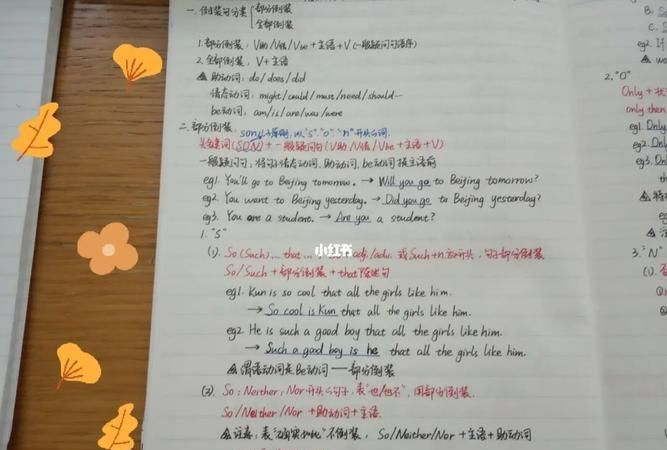 一. 倒装句分类 { 部分倒装
全部倒装
1. 部分倒装: V助/V情/Vbe + 主语 + V (一般疑问句语序)
2. 全部倒装: V + 主语
助动词: do/does/did
情态动词: might/could/must/need/should…
be动词: am/is/are/was/were
二. 部分倒装. "s" "o" "n" 开头
关键词(SON) + 一般疑问句 (V助/V情/Vbe + 主语 + V)
一般疑问句: 将句子情态动词, 助动词, be动词提主语前
eg1. You'll go to Beijing tomorrow. → Will you go to Beijing tomorrow?
eg2. You want to Beijing yesterday. → Did you go to Beijing yesterday?
eg3. You are a student. → Are you a student?
1. "S"
(1). So (Such)... that... adj./adv. 或 Such+n 开头, 句子部分倒装
小红书
So/Such + 部分倒装 + that 陈述句
eg1. Kun is so cool that all the girls like him.
→ So cool is Kun that all the girls like him.
eg2 He is such a good boy that all the girls like him.
→ Such a good boy is he that all the girls like him.
谓语动词是Be动词 —— 部分倒装
(2). So; Neither; Nor 开头句子, 表"也/也不", 用部分倒装.
So/Neither/Nor + 助动词 + 主语.
注意: 表"确实如此"不倒装, So/Neither/Nor + 主语 + 助动词
B. S
C. S
eg2. If
2. "O"
Only + 状
only then
eg1. Only
eg2. Only
eg3. Only
3. "N"
(1).